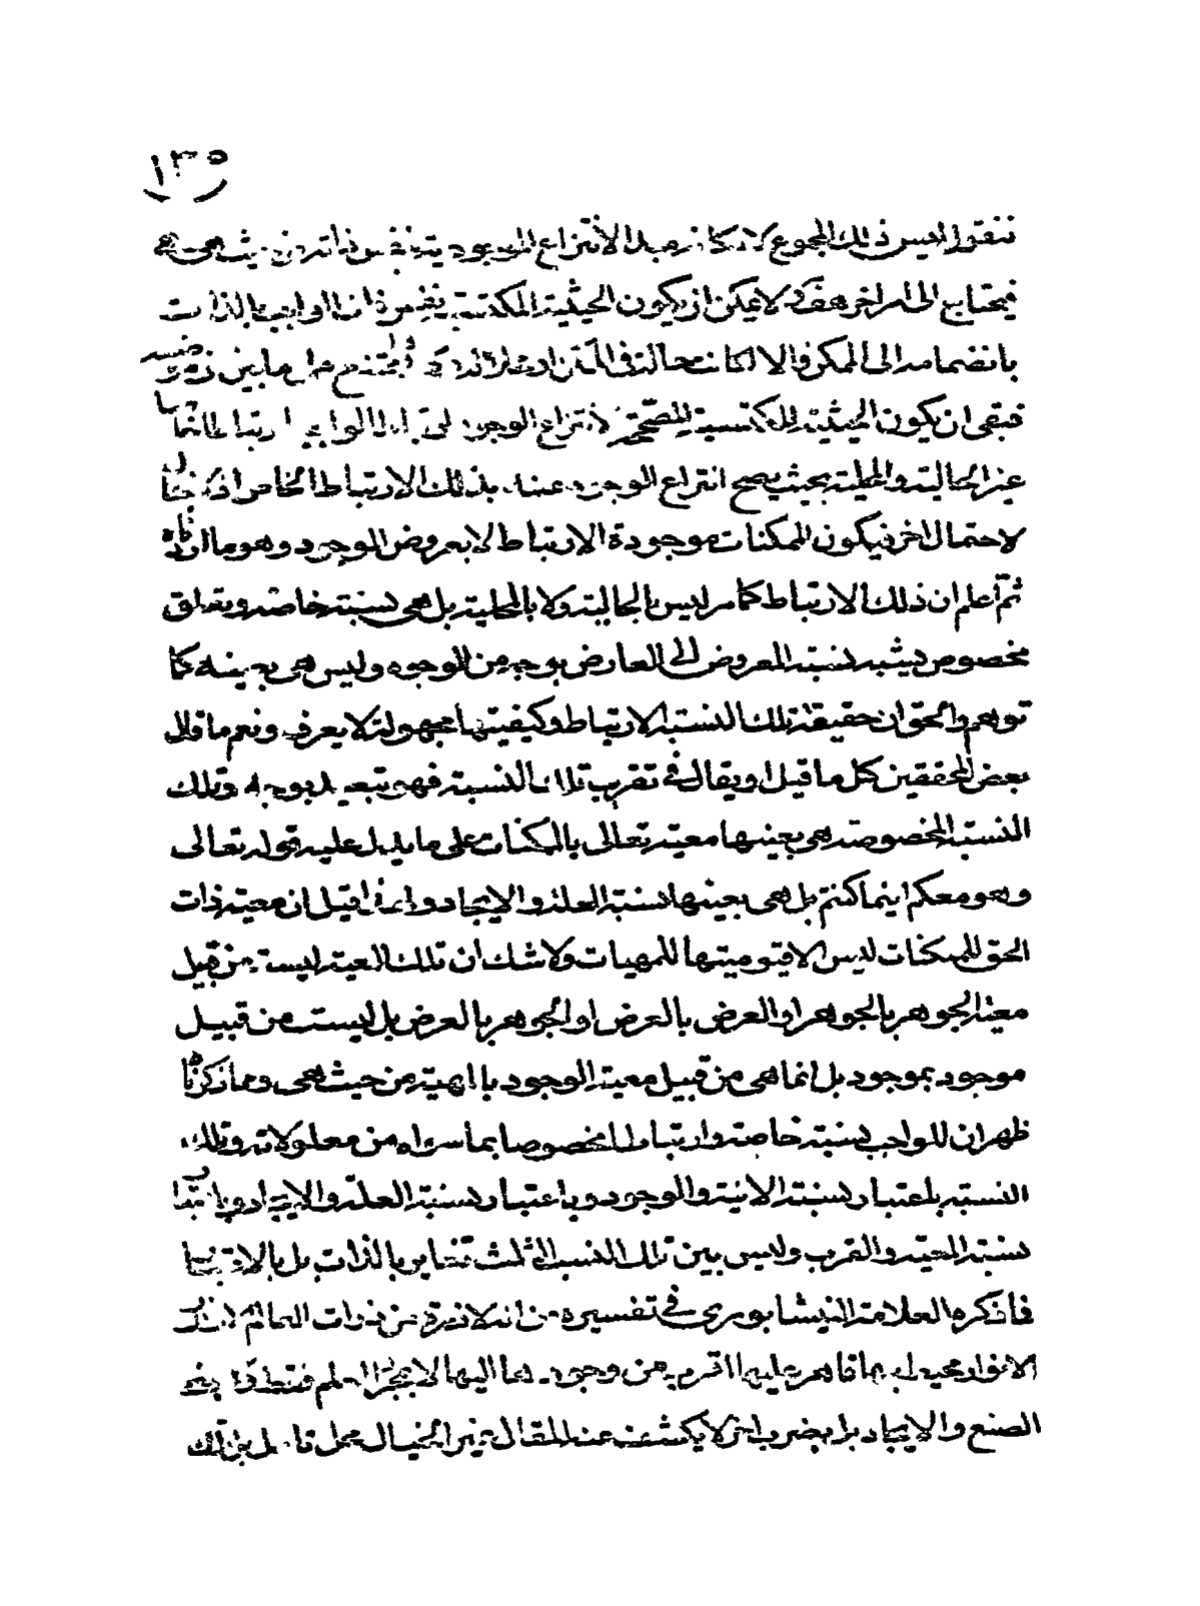 ١٣٥
فنقول ليس ذلك المجموع مبدا لانتزاع الموجودية بنفس ذاته من حيث هى هى
فيحتاج الى امر اخر هف لا يمكن ان يكون الحيثية المكتسبة نفس ذات الواجب بالذات
بانضمامه الى الممكن والا لكانت حالة فى الممكن او محلا له
فبقى ان يكون الحيثية المكتسبة المصححة لانتزاع الوجود هى ارتباطا
غير الحالية والمحلية بحيث يصح انتزاع الوجود عنها بذلك الارتباط الخاص اذ
لاحتمال اخر فيكون الممكنات موجودة الارتباط لا بعروض الوجود وهو ما
ثم اعلم ان ذلك الارتباط كما مر ليس بالحالية ولا بالمحلية بل هى نسبة خاصة وتعلق
مخصوص يشبه نسبة المعروض الى العارض بوجه من الوجوه وليس هى بعينه كما
توهم والحق ان حقيقة تلك النسبة الارتباط وكيفيتها مجهولة لا يعرف ونعم ما قال
بعض المحققين كل ما قيل او يقال فى تقرب تلك النسبة فهو تبعيد بوجه وتلك
النسبة المخصوصة هى بعينها معيته تعالى بالممكنات على ما يدل عليه قوله تعالى
وهو معكم اينما كنتم بل هى بعينها نسبة العلة والايجاد ولذا قيل ان معية ذات
الحق للممكنات ليس الا قيوميتها للمهيات ولا شك ان تلك المعية ليست من قبيل
معية الجوهر بالجوهر او العرض بالعرض او الجوهر بالعرض بل ليست من قبيل
موجود بموجود بل انما هى من قبيل معية الوجود بالمهية من حيث هى ومما ذكرنا
ظهر ان للواجب نسبة خاصة وارتباطا مخصوصا بما سواه من معلولاته وتلك
النسبة باعتبار نسبة الانية والوجود وباعتبار نسبة العلة والايجاد وباعتبار
نسبة المعية والقرب وليس بين تلك النسب الثلث تغاير بالذات بل بالاعتبار
فما ذكره العلامة النيشابورى فى تفسيره من انه لا ذرة من ذرات العالم الا ونور
الانوار محيط بها قاهر عليها اقرب من وجودها اليها لا بمجرد العلم فقط
الصنع والايجاد بل بضرب اخر لا يكشف عنه المقال غير الخيال محل تامل بل تلك